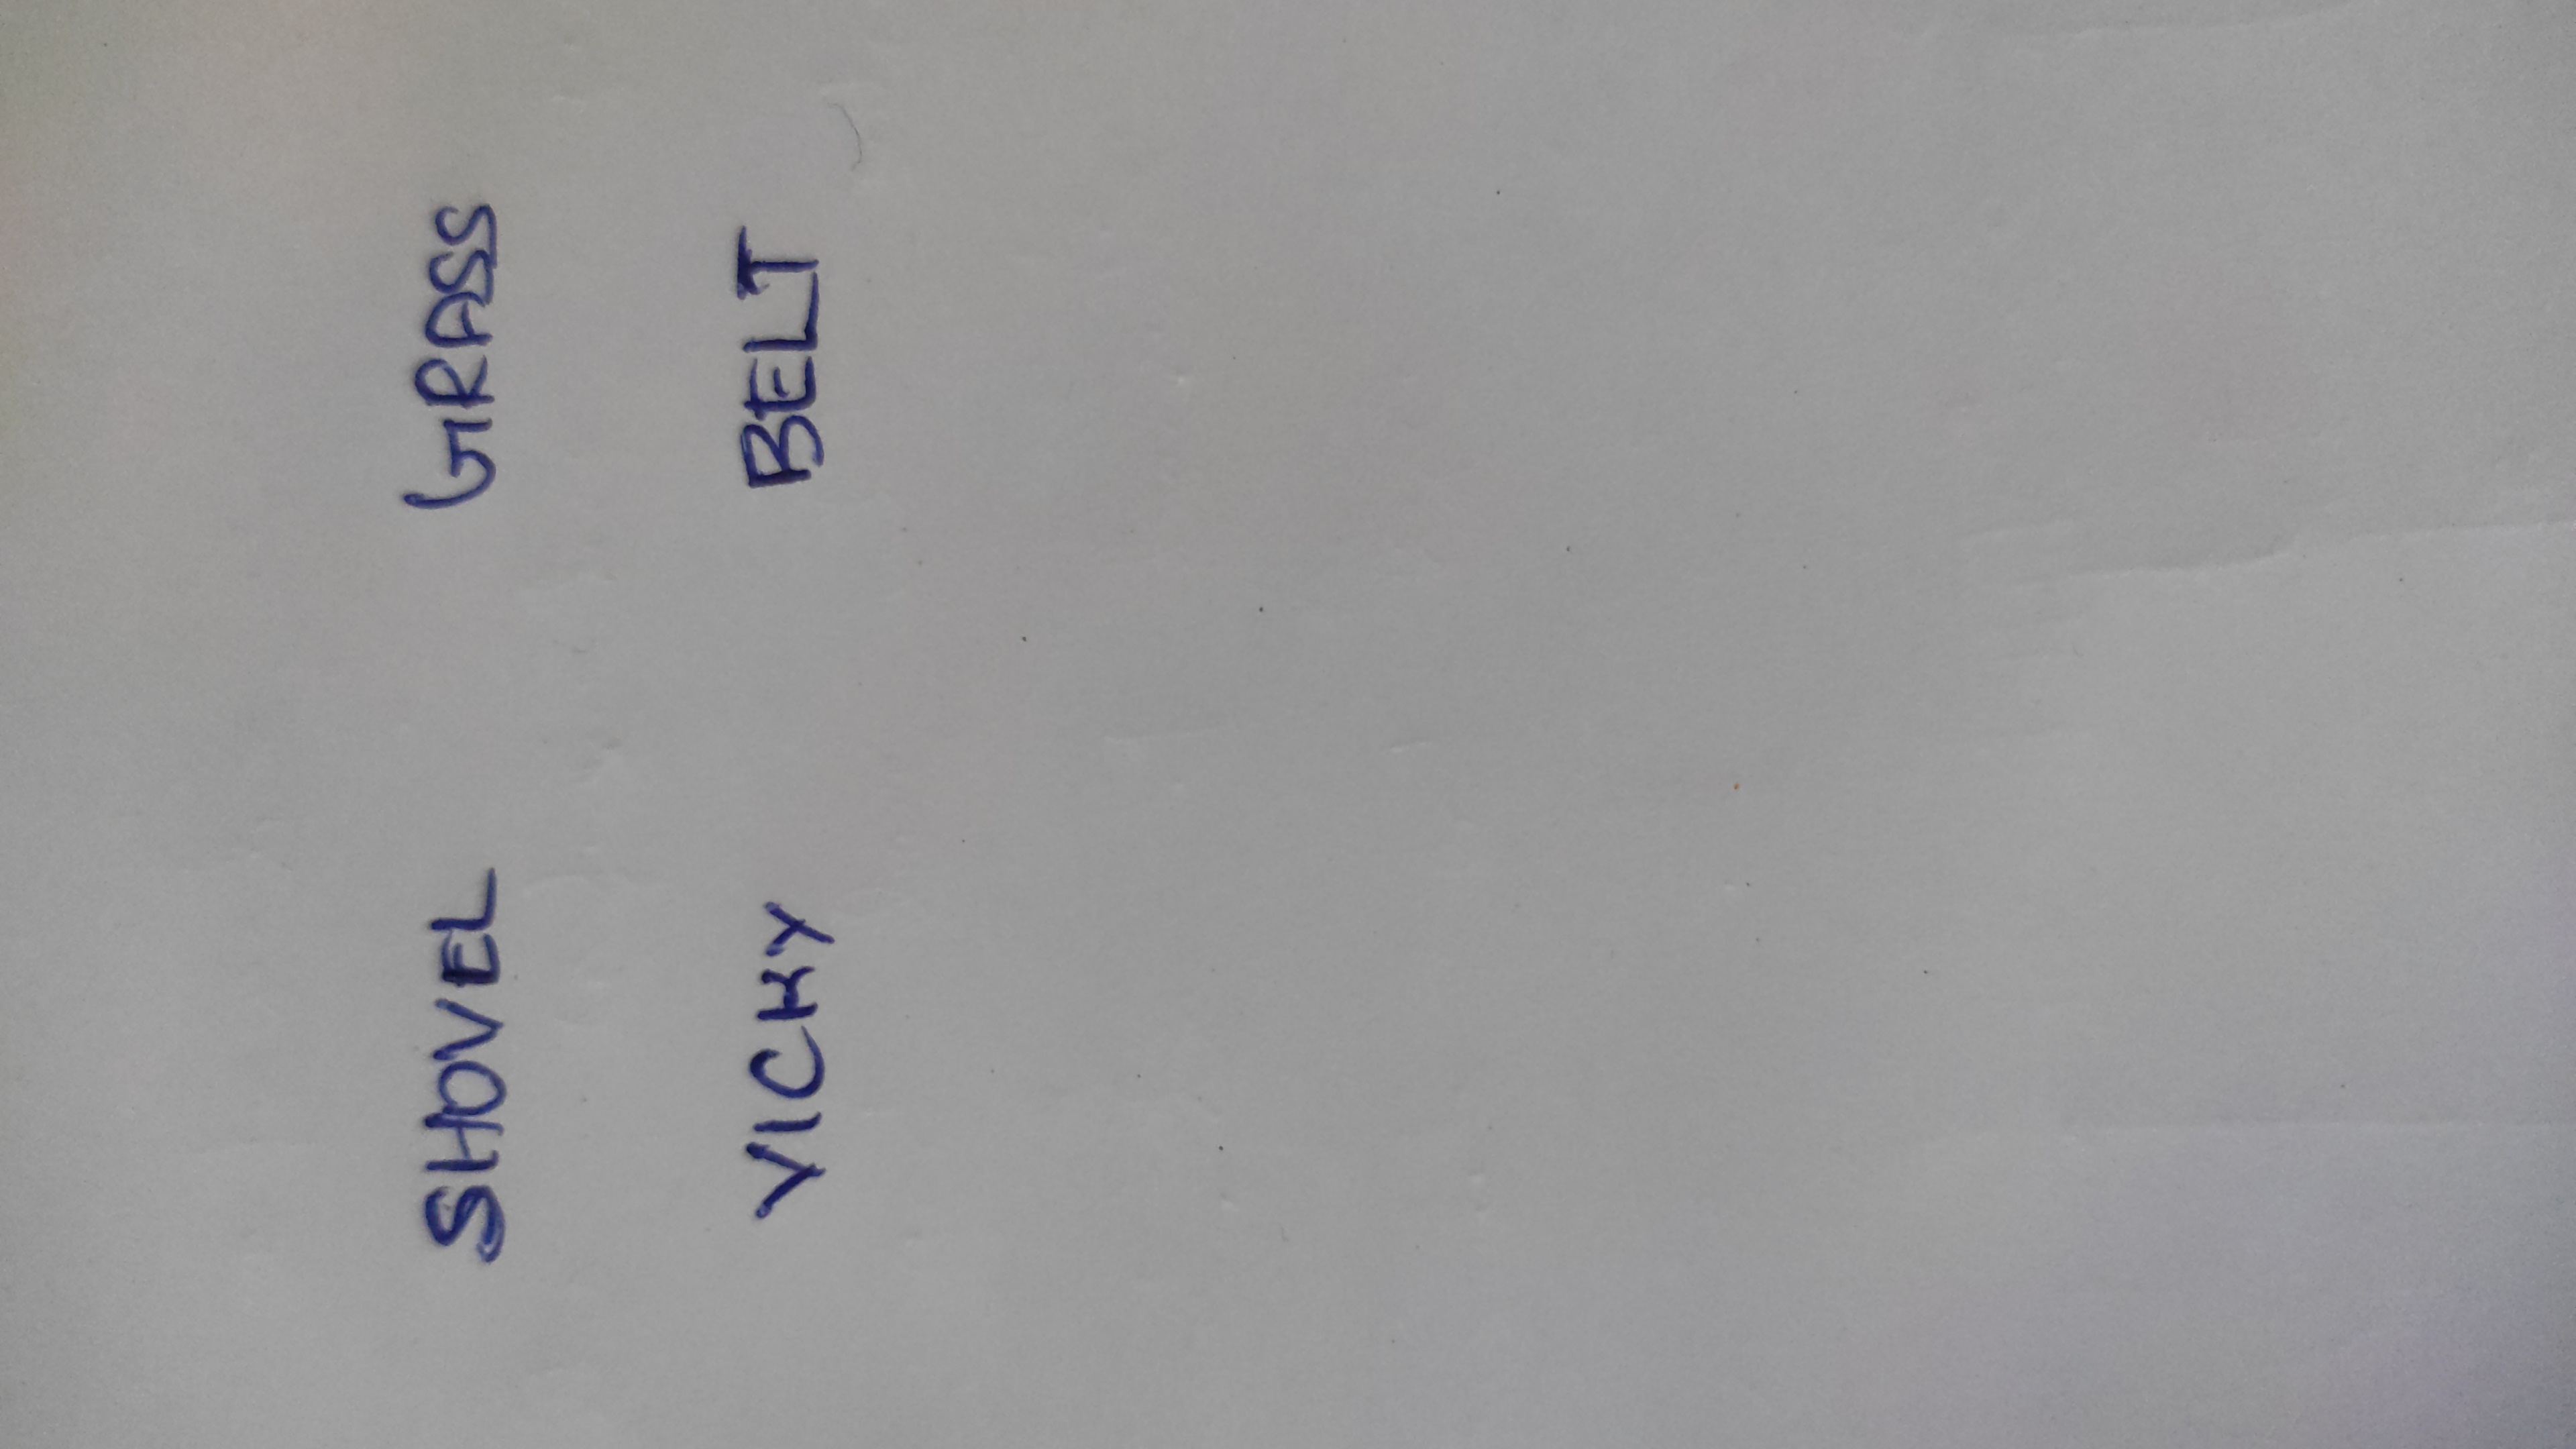 SHOVEL GRASS
VICKY BELT